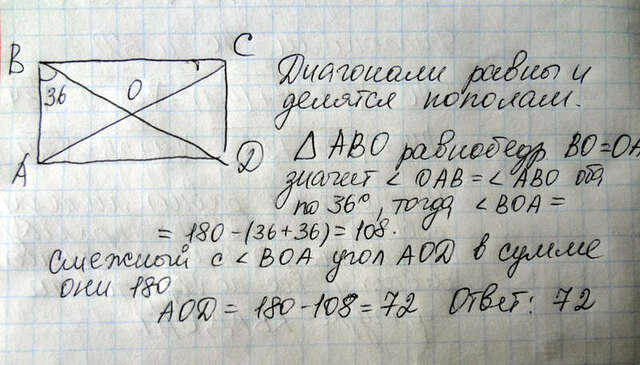 B C
36 O
A D
Диагонали равны и
делятся пополам.
△ ABO равнобедр BO=OA
значит < OAB = < ABO оба
по 36°, тогда < BOA =
= 180-(36+36)=108.
Смежный с < BOA угол AOD в сумме
они 180
AOD = 180-108=72 Ответ: 72